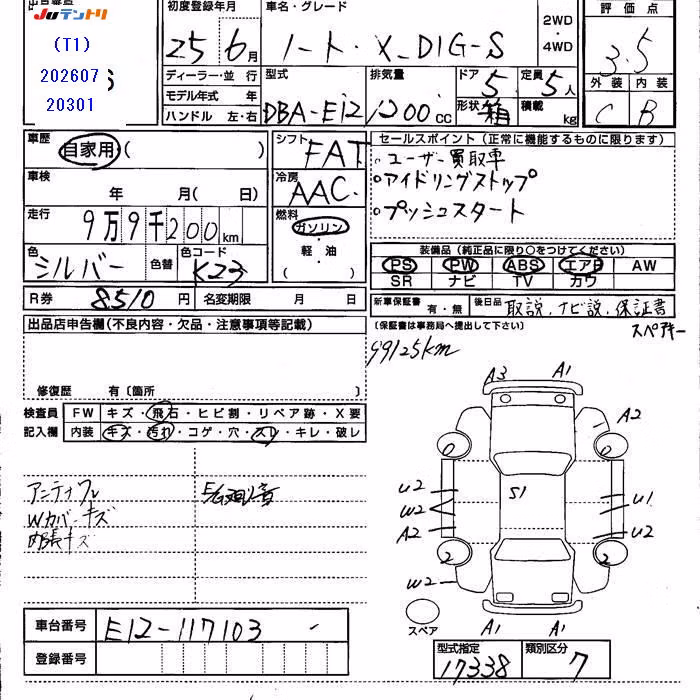 出品番号
Juテントリ
(T1)
202607
20301
初度登録年月
25年6月
車名・グレード
ノート・X_DIG-S
2WD
・
4WD
評価点
3.5
外装 内装
C B
ディーラー・並 行
モデル年式 年
ハンドル 左・右
型式
DBA-E12
排気量
1200cc
ドア
5
形状
箱
定員
5人
積載
kg
車歴
自家用( )
車検
年 月( 日)
走行
9万9千200km
色
シルバー
色替
色コード
K23
シフト
FAT
冷房
AAC
燃料
ガソリン
・
軽・油
( )
セールスポイント(正常に機能するものに限ります)
。ユーザー買取車
・アイドリングストップ
・プッシュスタート
装備品(純正品に限り○をつけてください)
PS PW ABS エアB AW
SR ナビ TV カワ
R券 8510円 名変期限 月 日
新車保証書 有・無
後日品 取説、ナビ説、保証書
スペアキー
(保証書は事務局へ提出して下さい)
出品店申告欄(不良内容・欠品・注意事項等記載)
99125km
修復歴 有〔箇所 〕
検査員
記入欄
FW キズ・飛石・ヒビ割・リペア跡・X要
内装 キズ・汚れ・コゲ・穴・スレ・キレ・破レ
アンテナフレ
Wカバーキズ
内張キズ
A3 A1
A2
0 0
U2
W2
A2
S1
U1
U2
2 2
W2
スペア
A1 A1
車台番号 E12-117103
登録番号
型式指定
17338
類別区分
7